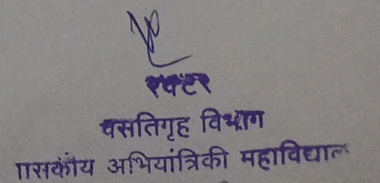 रेक्टर
वसतिगृह विभाग
शासकीय अभियांत्रिकी महाविद्याल